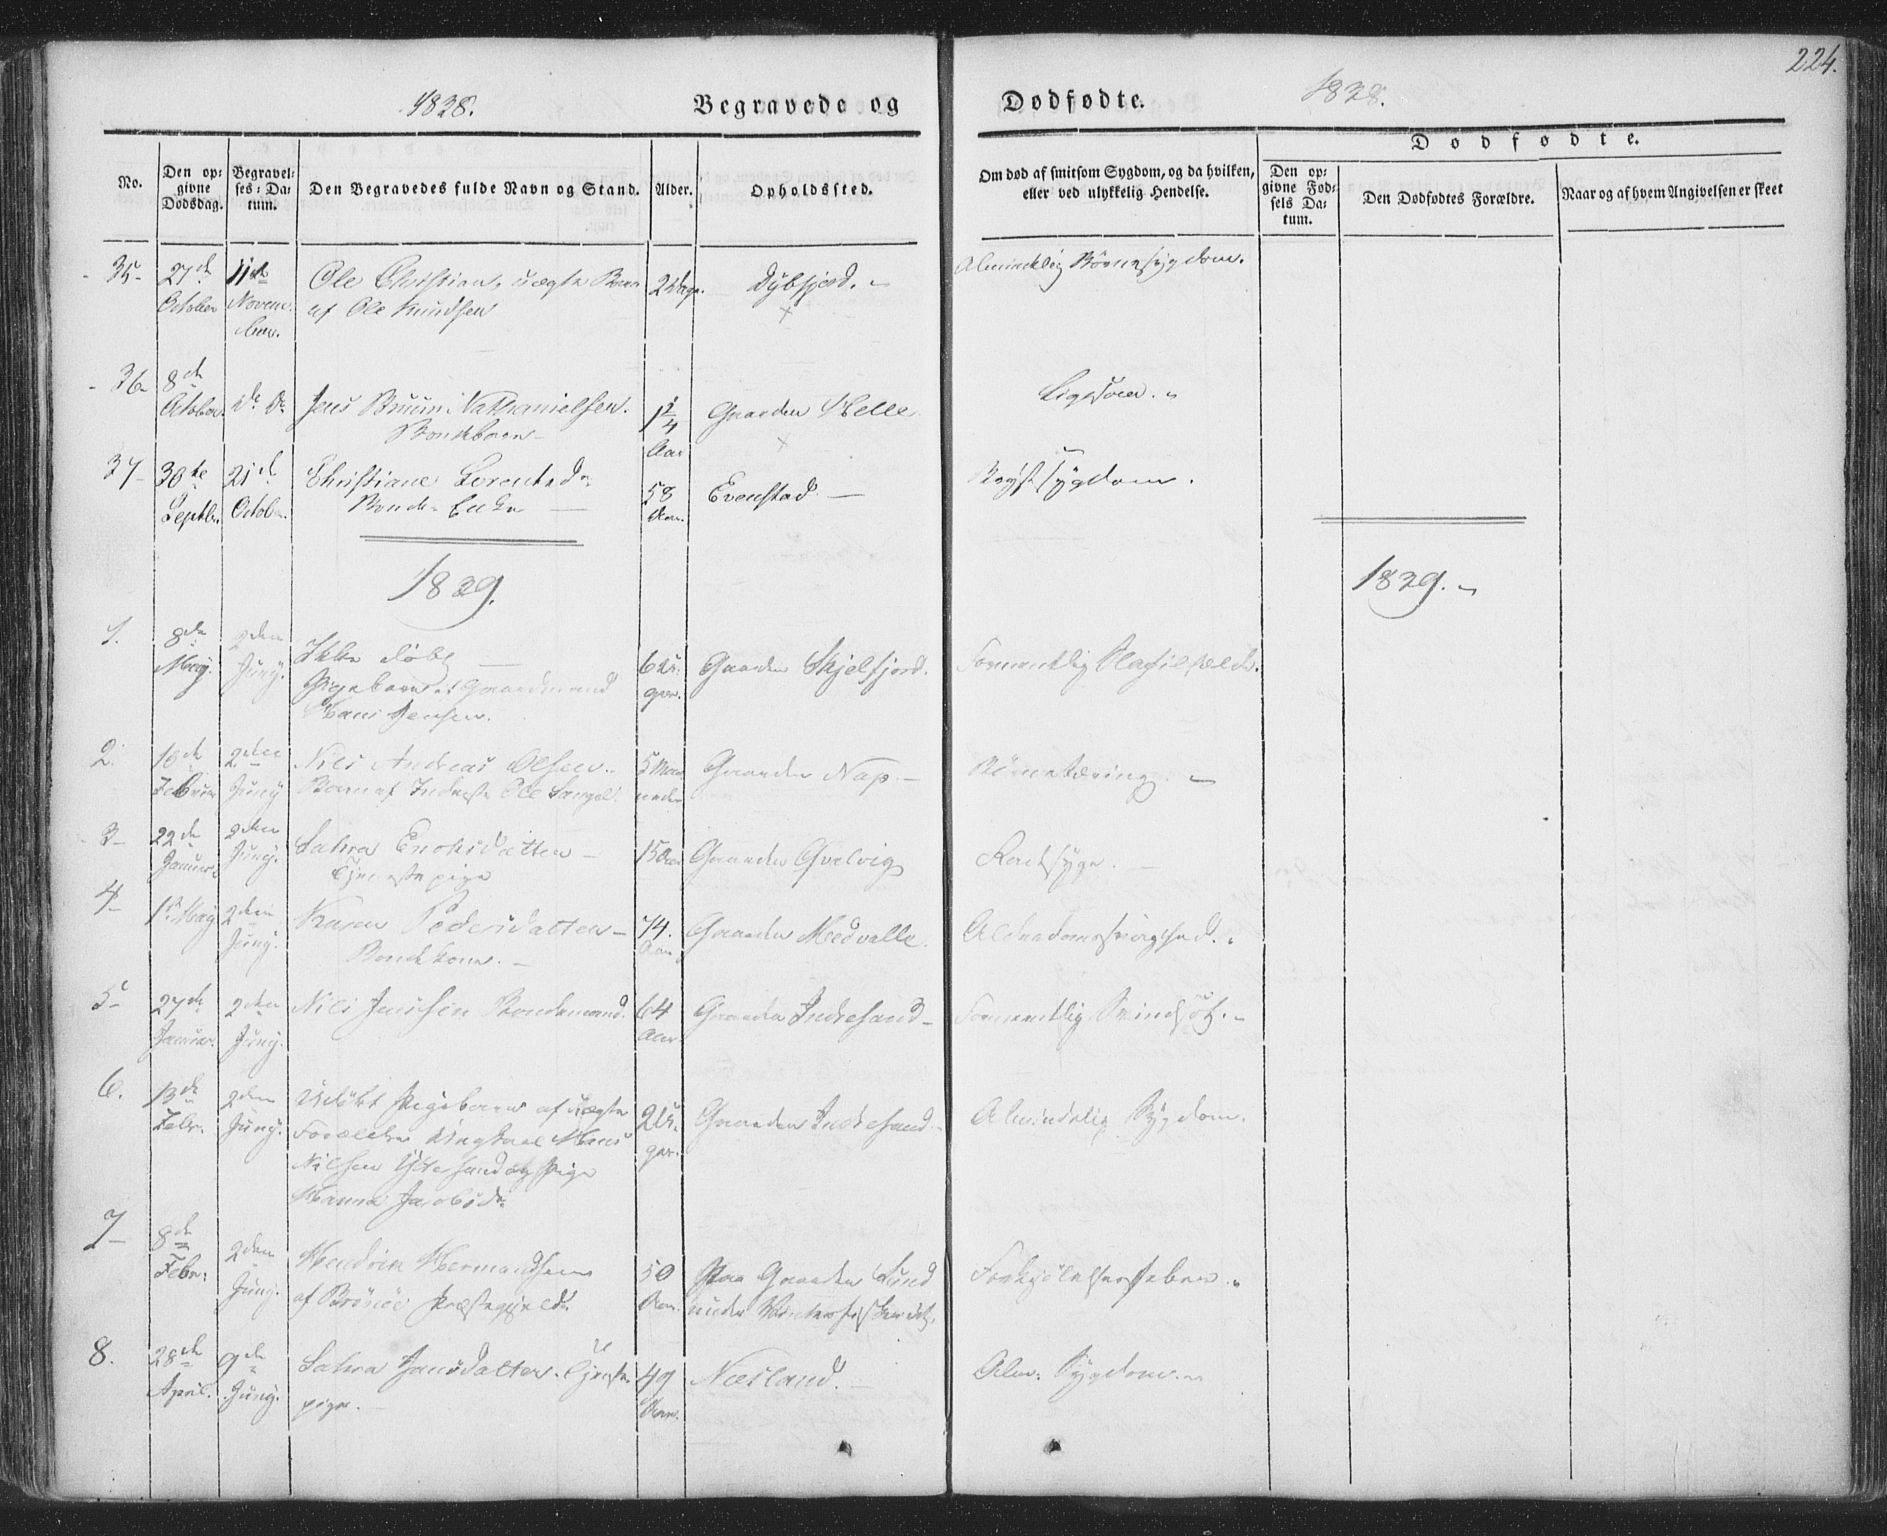 224.
1828.
Begravede og
Dødfødte.
1828.
Dødfødte.
No.
Den op=
givne
Dødsdag.
Begravel=
ses=Da=
tum.
Den Begravedes fulde Navn og Stand.
Alder.
Opholdssted.
Om død af smitsom Sygdom, og da hvilken,
eller ved ulykkelig Hendelse.
Den op=
givne Fød=
sels Da=
tum.
Den Dødfødtes Forældre.
Naar og af hvem Angivelsen er skeet
35-
27de
October
11te
Novem-
ber.
Ole Christian, uægte Barn
af Ole Knudsen
2 Dage.
Dybfjord.
Almindelig Børnesygdom.
36-
8de
October
Do Do
Jens Bruun Nathanielsen.
Bondebarn-
1 1/4
Aar
Gaarden Helle
37-
30te
Septbr.
21de
October.
Christiane Lorentsdr
Bonde-Enke
58
Aar.
Evenstad.
Brystsygdom.
1829.
1829.
1.
8de
May.
2den
Juny.
Ikke døbt
Pigebarn af Gaardmand
Hans Jensen.
6 Da-
ger.
Gaarden Skjelfjord.
Formentlig
2.
10de
Februar
2den
Juny
Nils Andreas Olsen.
Barn af Inderste Ole
5 Maa
neder
Gaarden Nap.
Børnetæring.
3-
22de
Januar
2den
Juny.
Sahra Enoksdatter
Tjenestepige
15 Aar
Gaarden Qvalvig
4-
1ste May
2den
Juny.
Karen Pedersdatter
Bondekone.
74.
Aar.
Gaarden Medvolle.
Alderdomssvaghed.
5-
27de
Januar.
2den
Juny.
Nils Jensen Bondemand.
64
Aar.
Gaarden Indresand
Formentlig Svindsot.
6.
13de
Febr.
2den
Juny.
Udøbt Pigebarn af uægte
Forældre Ungkarl Hans
Nilsen Ydresand og Pige
Hanna Jacobsdr
2 Da-
ger.
Gaarden Indresand
Almindelig Sygdom.
7-
8de
Febr.
2den
Juny.
Hendrik Hermandsen
af Brönöe Præstegjeld
50
Aar.
Paa Gaarden Sund
under Vinterfiskeriet.
Forkjølelsesfeber.
8.
28de
April.
9de
Juny.
Sahra Jansdatter. Tjeneste
pige.
49
Aar.
Næsland.
Alm. Sygdom.